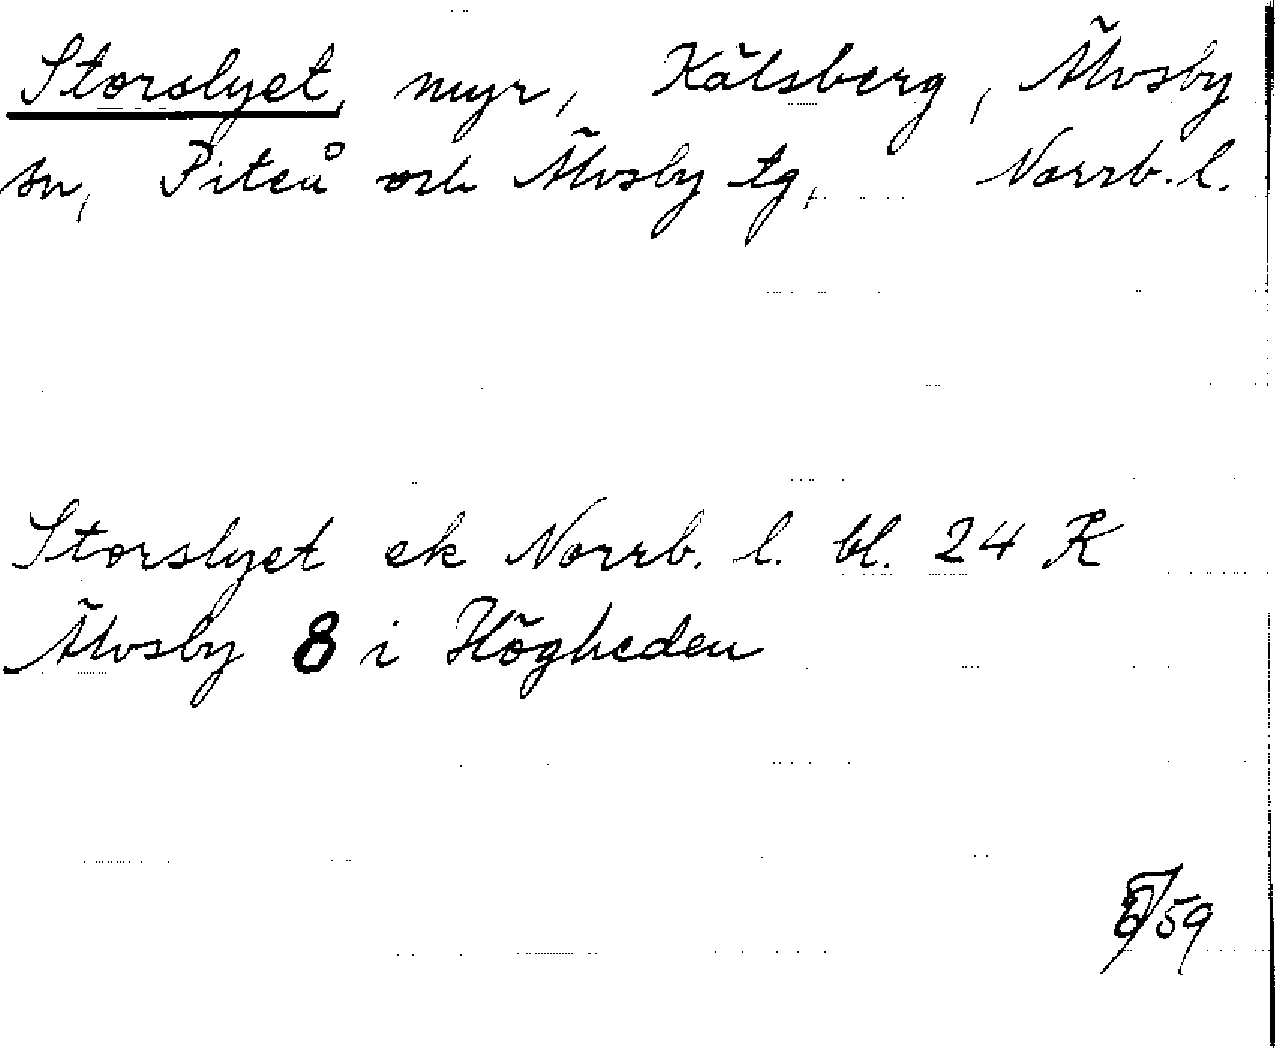 Storslyet, myr, Kälsberg, Älvsby
sn, Piteå och Älvsby tg, Norrb. l.
Storslyet ek Norrb. l. bl. 24 K
Älvsby 8 i Högheden
59